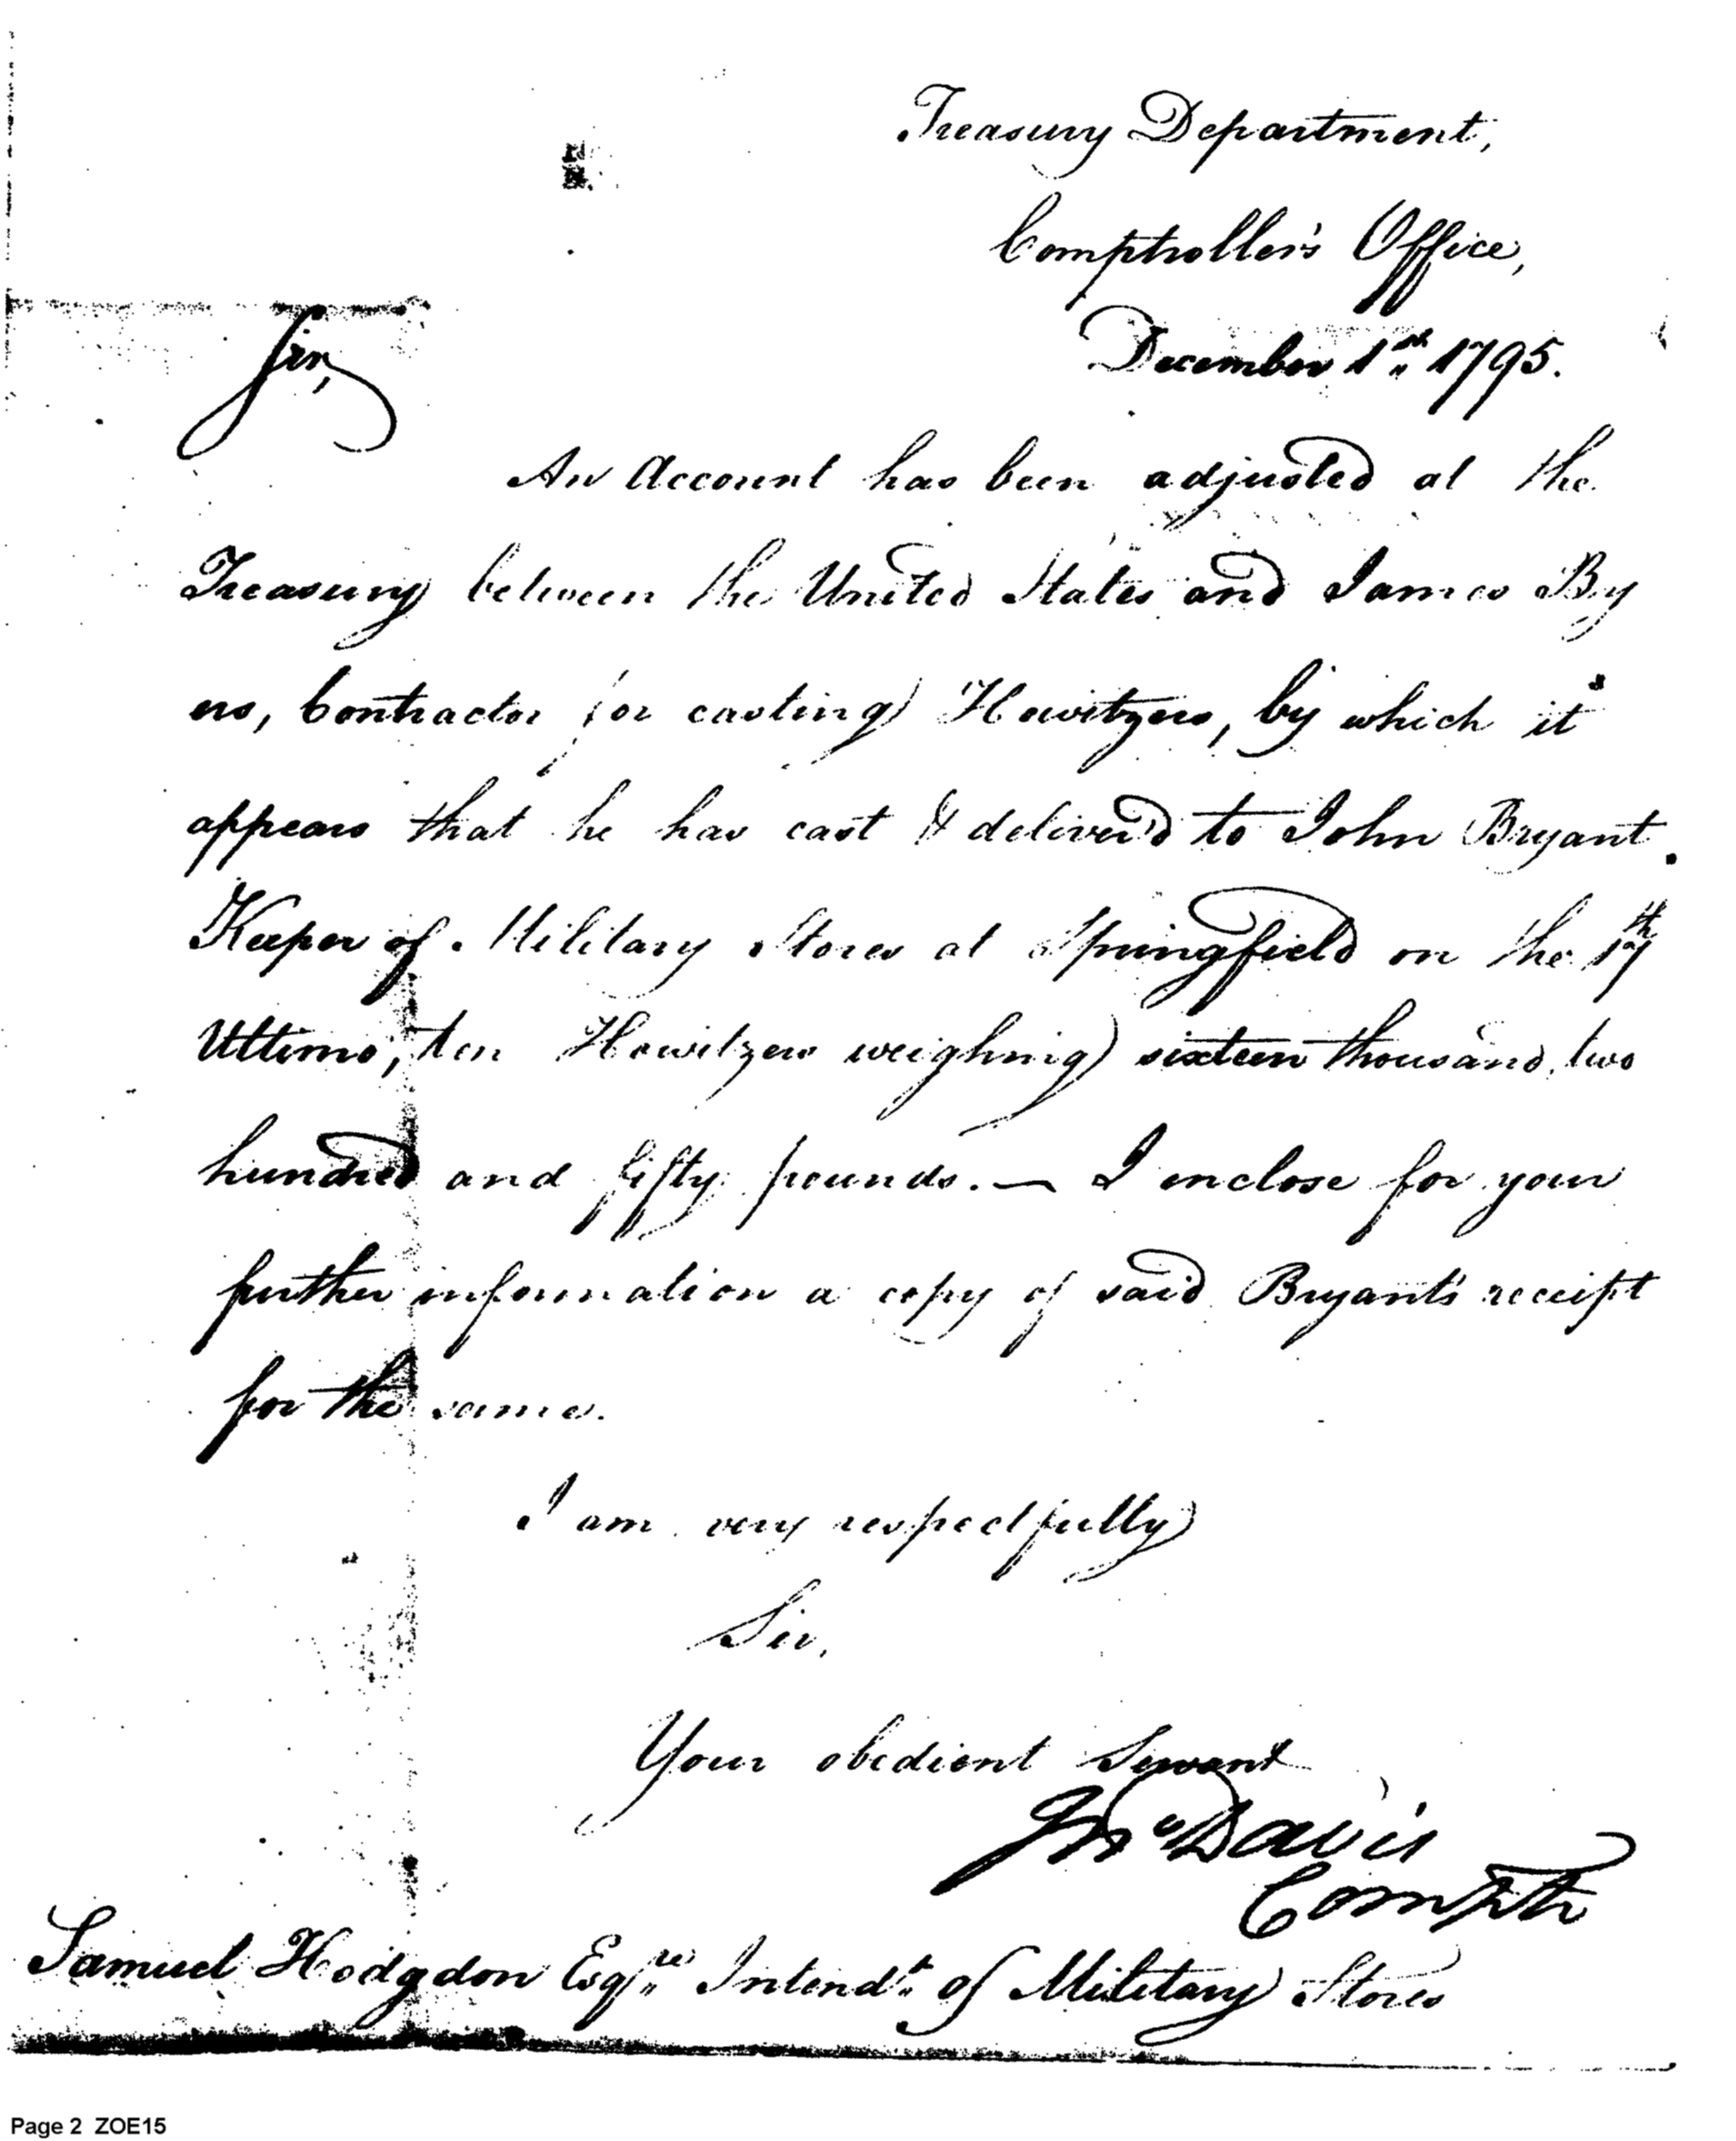 Treasury Department,
Comptroller's Office,
December 1st 1795.
Sir,
An Account has been adjusted at the
Treasury between the United States and James By
ers, Contractor for casting Howitzers, by which it
appears that he has cast & deliver'd to John Bryant
Keeper of Military Stores at Springfield on the 17th
Ultimo, ten Howitzers weighing sixteen thousand, two
hundred and fifty pounds. — I enclose for your
further information a copy of said Bryant's receipt
for the same.
I am very respectfully
Sir,
Your obedient Servant
Jno Davis
Comptr
Samuel Hodgdon Esqre Intendt of Military Stores
Page 2 ZOE15